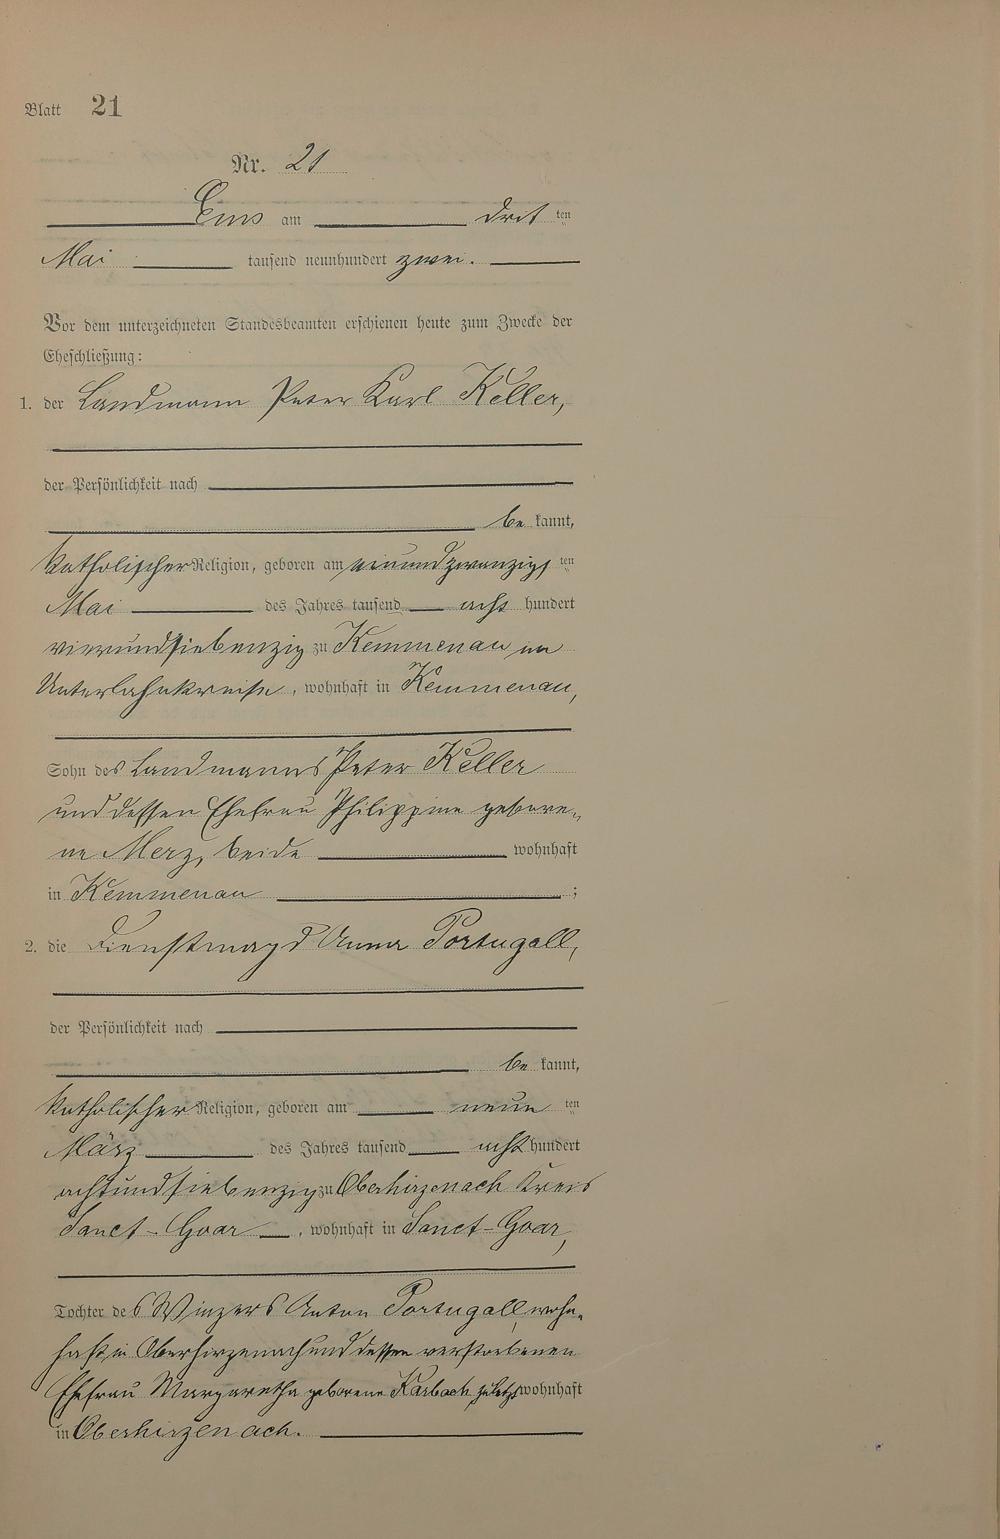 Blatt 21
Nr. 21
Ems am drit ten
Mai tausend neunhundert zwei.
Vor dem unterzeichneten Standesbeamten erschienen heute zum Zwecke der
Eheschließung:
1. der Landmann Peter Karl Keller,
der Persönlichkeit nach
be kannt,
katholischer Religion, geboren am einundzwanzigs ten
Mai des Jahres tausend acht hundert
vierundsiebenzig zu Kemmenau im
Unterlahnkreise, wohnhaft in Kemmenau,
Sohn des Landmanns Peter Keller
und dessen Ehefrau Philippine gebore-
ne Merz, beide wohnhaft
in Kemmenau ;
2. die Dienstmagd Anna Portugall,
der Persönlichkeit nach
be kannt,
katholischer Religion, geboren am neun ten
März des Jahres tausend acht hundert
achtundsiebenzig zu Oberhirzenach Kreis
Sanct-Goar, wohnhaft in Sanct-Goar,
Tochter des Winzers Anton Portugall, wohn-
haft in Oberhirzenach und dessen verstorbenen
Ehefrau Margaretha geborene Karbach, zuletzt wohnhaft
in Oberhirzenach.